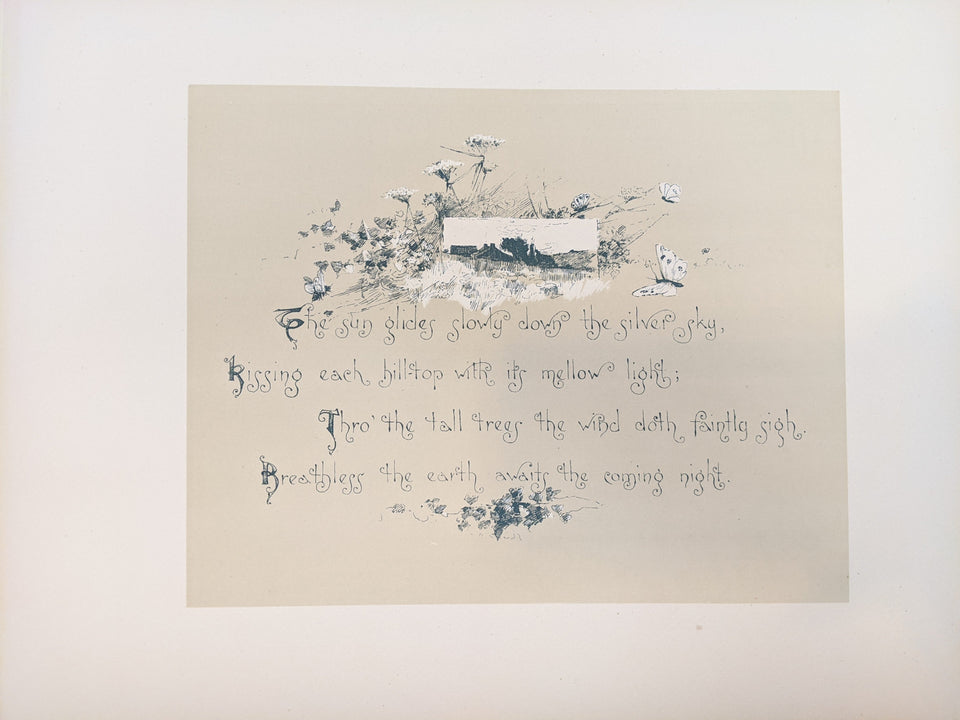 The sun glides slowly down the silver sky,
Kissing each hill-top with its mellow light;
Thro' the tall trees the wind doth faintly sigh.
Breathless the earth awaits the coming night.